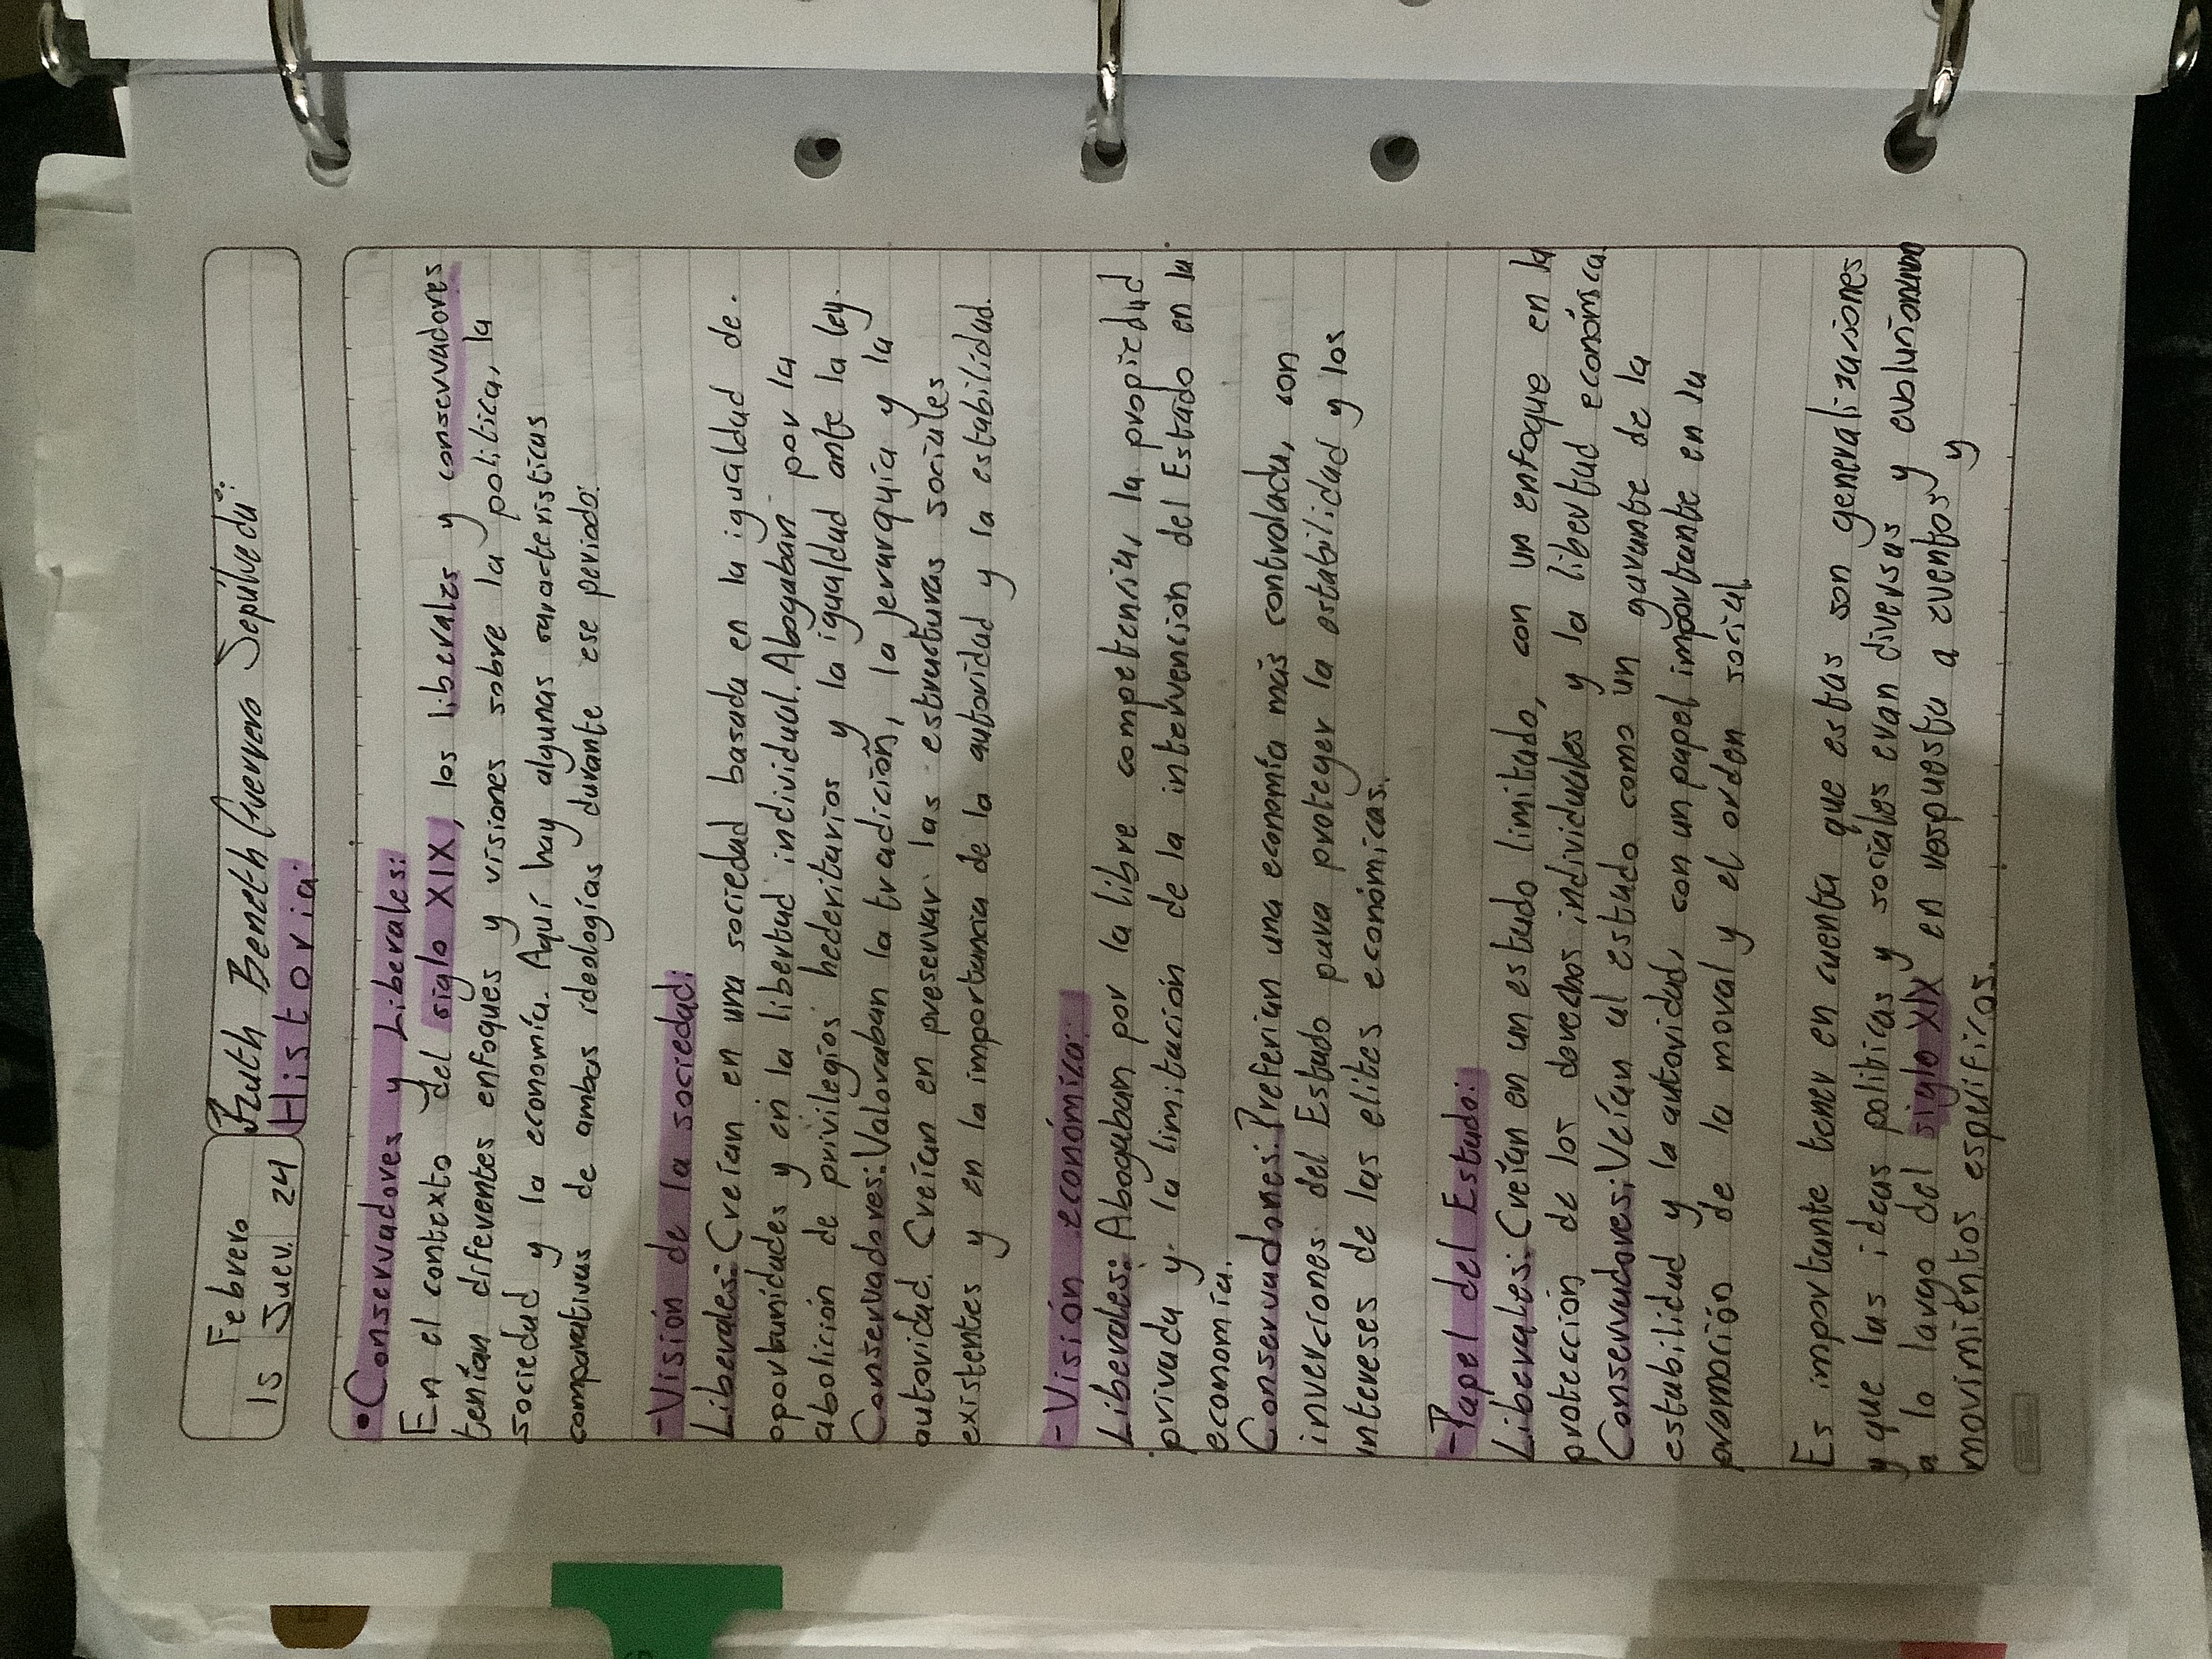 Febrero
15 Juev. 24
Ruth Beneth Guerrero Sepúlveda
Historia.
•Conservadores y Liberales:
En el contexto del siglo XIX, los liberales y conservadores
tenían diferentes enfoques y visiones sobre la política, la
sociedad y la economía. Aquí hay algunas características
comparativas de ambas ideologías durante ese periodo:
-Visión de la sociedad:
Liberales: Creían en una sociedad basada en la igualdad de.
oportunidades y en la libertad individual. Abogaban por la
abolición de privilegios hederitarios y la igualdad ante la ley.
Conservadores: Valoraban la tradición, la jerarquía y la
autoridad. Creían en preservar las estructuras sociales
existentes y en la importancia de la autoridad y la estabilidad.
-Visión económica:
Liberales: Abogaban por la libre competencia, la propiedad
privada y la limitación de la intervención del Estado en la
economía.
Conservadores: Preferían una economía más controlada, con
inverciones del Estado para proteger la estabilidad y los
intereses de las elites económicas.
-Papel del Estado:
Liberales: Creían en un estado limitado, con un enfoque en la
protección de los derechos individuales y la libertad económica.
Conservadores: Veían al estado como un garante de la
estabilidad y la autoridad, con un papel importante en la
promoción de la moral y el orden social
Es importante tener en cuenta que estas son generalizaciones
y que las ideas políticas y sociales eran diversas y evolucionando
a lo largo del siglo XIX en respuesta a eventos y
movimientos específicos.